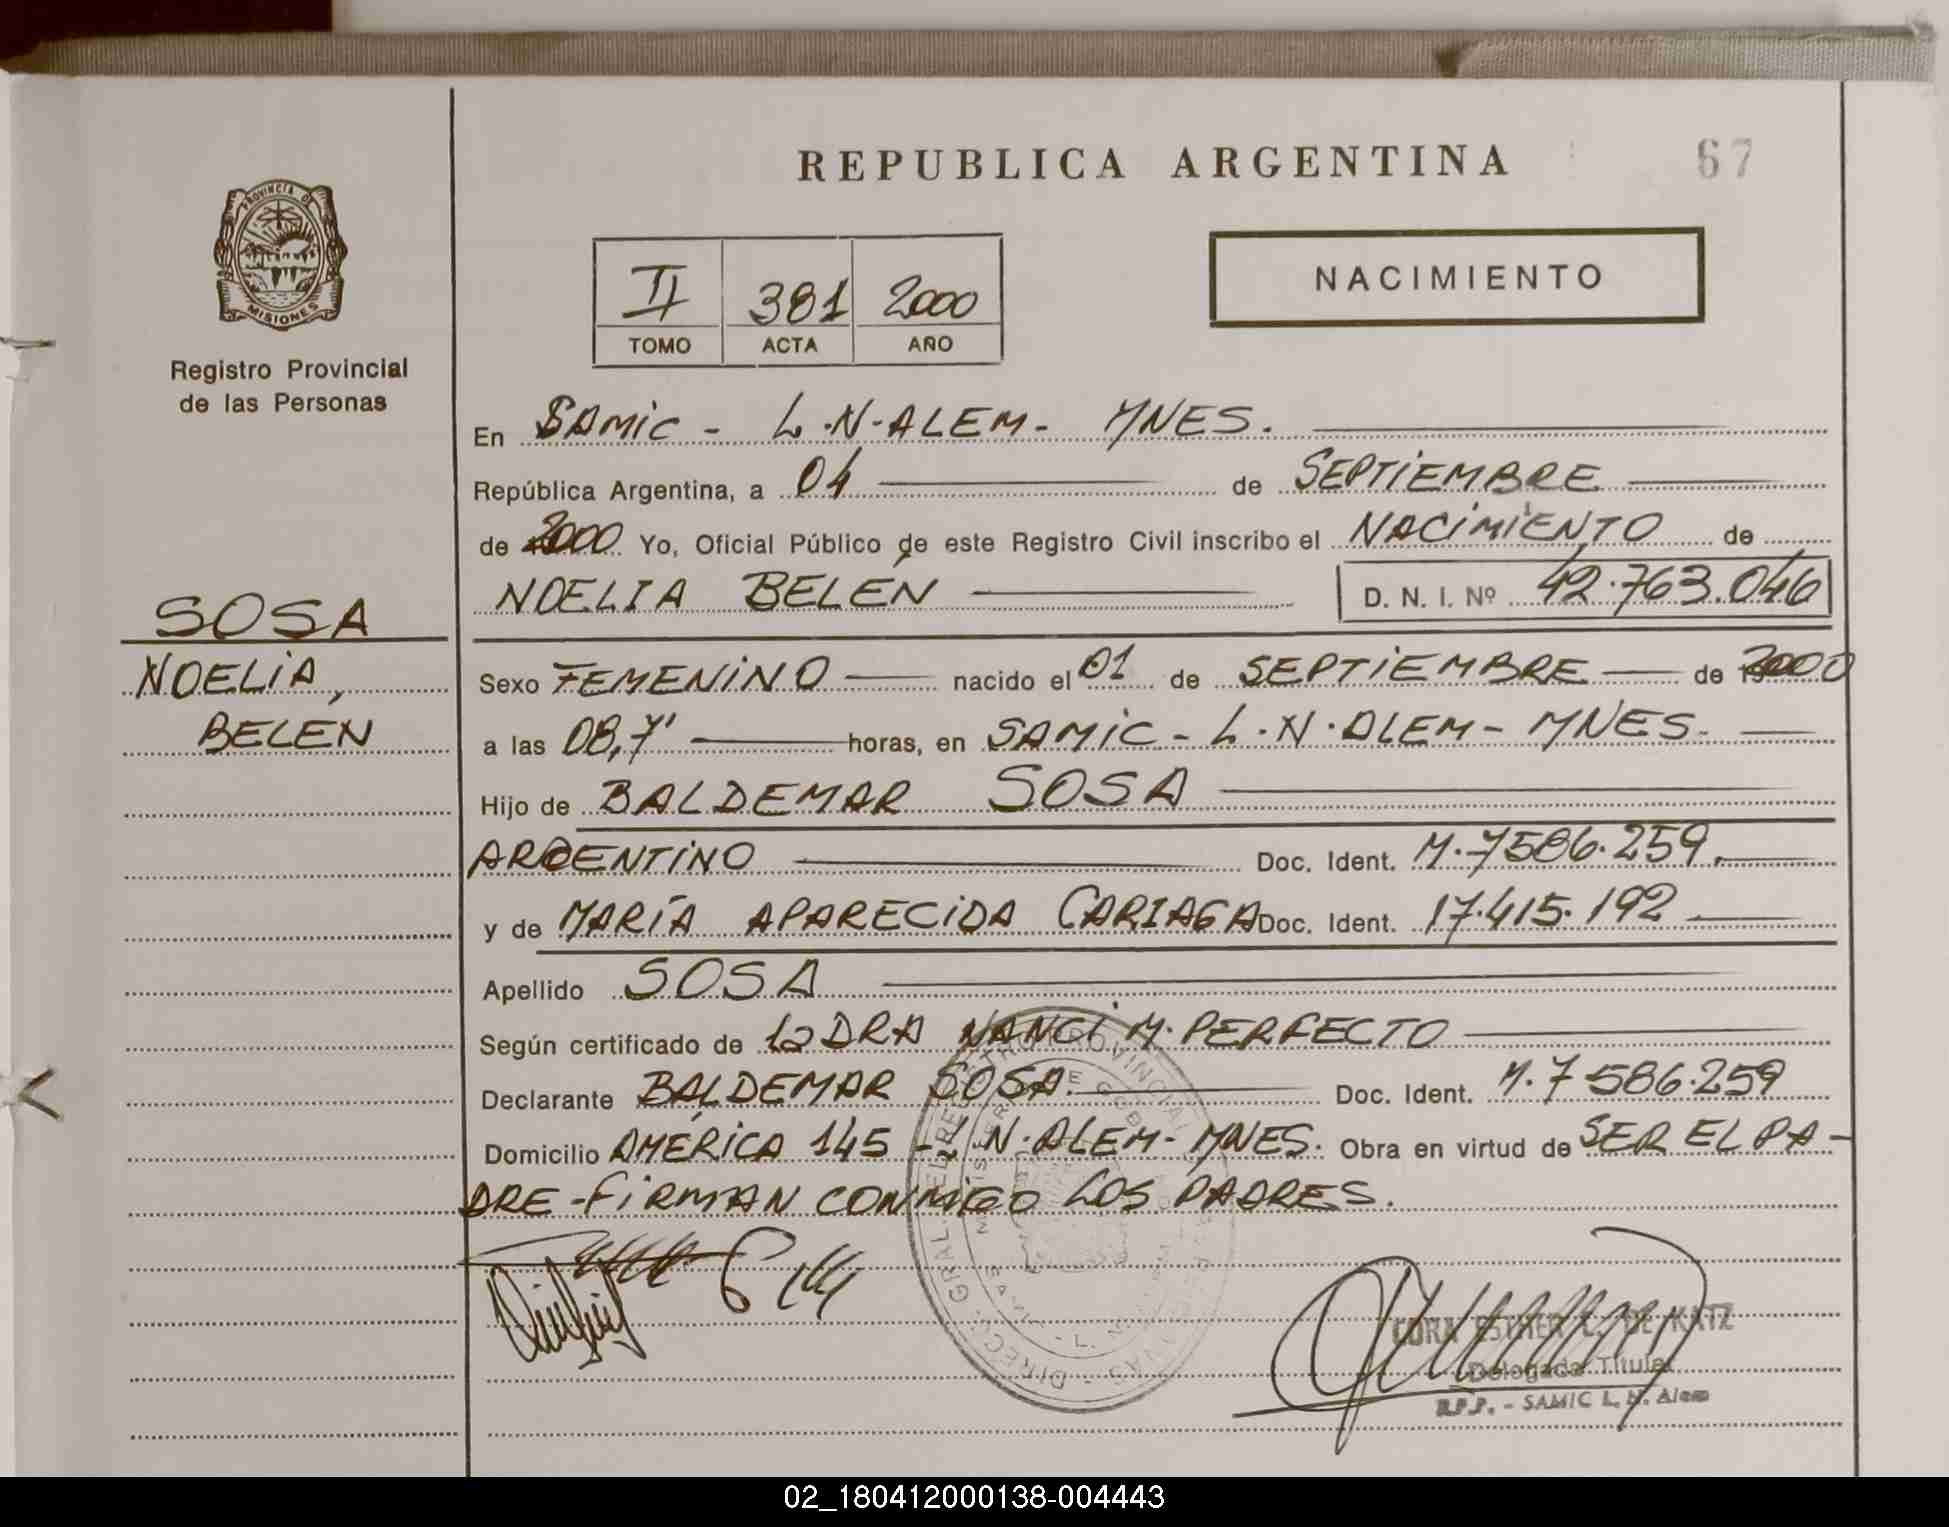 REPUBLICA ARGENTINA
67
PROVINCIA DE
MISIONES
Registro Provincial
de las Personas
II 381 2000
TOMO ACTA AÑO
NACIMIENTO
En SAMIC - L.N.ALEM - MNES.
República Argentina, a 04 de SEPTIEMBRE
de 2000 Yo, Oficial Público de este Registro Civil inscribo el NACIMIENTO de
NOELIA BELÉN D. N. I. Nº 42.763.046
SOSA
NOELIA,
BELEN
Sexo FEMENINO nacido el 01 de SEPTIEMBRE de 2000
a las 08,7' horas, en SAMIC - L.N.ALEM - MNES.
Hijo de BALDEMAR SOSA
ARGENTINO Doc. Ident. M.7586.259.
y de MARÍA APARECIDA CARIAGA Doc. Ident. 17.415.192
Apellido SOSA
Según certificado de la DRA NANCI M. PERFECTO
Declarante BALDEMAR SOSA. Doc. Ident. M.7586.259
Domicilio AMÉRICA 145 - L.N.ALEM - MNES. Obra en virtud de SER EL PA-
DRE - FIRMAN CONMIGO LOS PADRES.
ESTHER DE KATZ
Delegada Titular
R.P.P. - SAMIC L. N. Alem
02_180412000138-004443